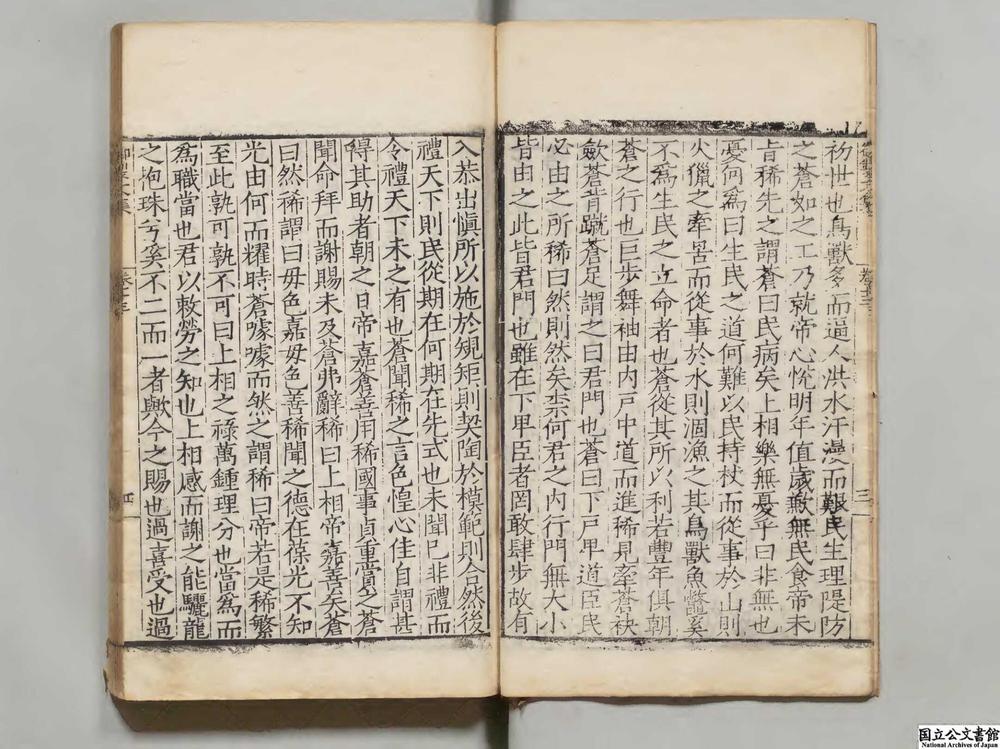 初世也鳥獸多而逼人洪水汗漫而艱民生理隄防
之蒼如之工乃就帝心悅明年值歲歉無民食帝未
旨稀先之謂蒼曰民病矣上相樂無憂乎曰非無也
憂何為曰生民之道何難以民持杖而從事於山則
火獵之牽罟而從事於水則涸漁之其鳥獸魚鱉奚
不為生民之立命者也蒼從其所以利若豐年俱朝
蒼之行也巨步舞袖由內戶中道而進稀見牽蒼袂
歛蒼肯蹴蒼足謂之曰君門也蒼曰下戶甲道臣民
必由之所稀曰然則然矣柰何君之內行門無大小
皆由之此皆君門也雖在下甲臣者罔敢肆步故有
入恭出愼所以施於規矩則契陶於模範則合然後
禮天下則民從期在何期在先式也未聞已非禮而
令禮天下未之有也蒼聞稀之言色惶心佳自謂甚
得其助者朝之日帝嘉蒼善用稀國事貞重賞之蒼
聞命拜而謝賜未及蒼弗辭稀曰上相帝嘉善矣蒼
曰然稀謂曰毋色嘉毋色善稀聞之德在葆光不知
光由何而耀時蒼噱噱而然之謂稀曰帝若是稀繁
至此孰可孰不可曰上相之祿萬鍾理分也當為而
為職當也君以敕勞之知也上相感而謝之能驪龍
之抱珠兮奚不二而一者歟今之賜也過喜受也過
卷十三
三
卷十三
四
国立公文書館
National Archives of Japan